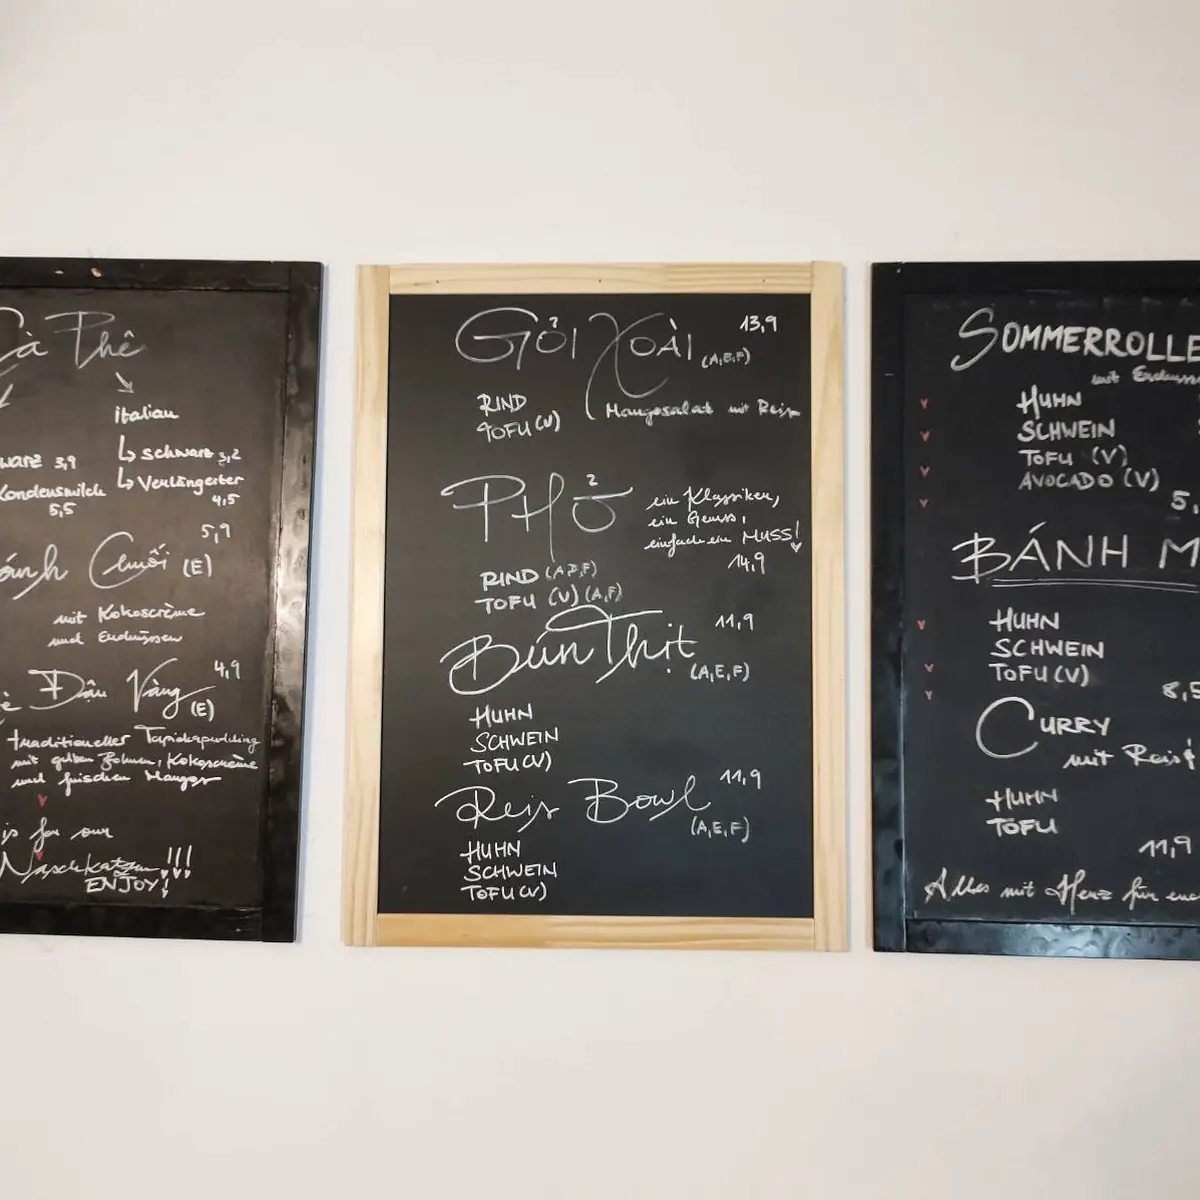 Cà Phê
italian
↳ schwarz 3,2
warz 3,9
↳ Verlängerter
4,5
Kondensmilch
5,5
5,9
Chuối (E)
mit Kokoscrème
und Erdnüssen
4,9
Đậu Vàng (E)
traditioneller Tapiokapudding
mit gelben Bohnen, Kokoscrème
und frischen Mangos
is for our
Naschkatzen !!!
ENJOY!
GỎI XOÀI 13,9
(A,E,F)
RIND Mangosalat mit Reis
TOFU (V)
PHỞ ein Klassiker,
ein Genuss,
einfach ein MUSS!
14,9
RIND
TOFU (V) (A,F)
Bún Thịt 11,9
(A,E,F)
HUHN
SCHWEIN
TOFU (V)
Reis Bowl 11,9
(A,E,F)
HUHN
SCHWEIN
TOFU (V)
SOMMERROLLE
mit Erdnuss
HUHN
SCHWEIN
TOFU (V)
AVOCADO (V)
5,
BÁNH M
HUHN
SCHWEIN
TOFU (V)
8,5
CURRY
mit Reis
HUHN
TOFU
11,9
Alles mit Herz für euc